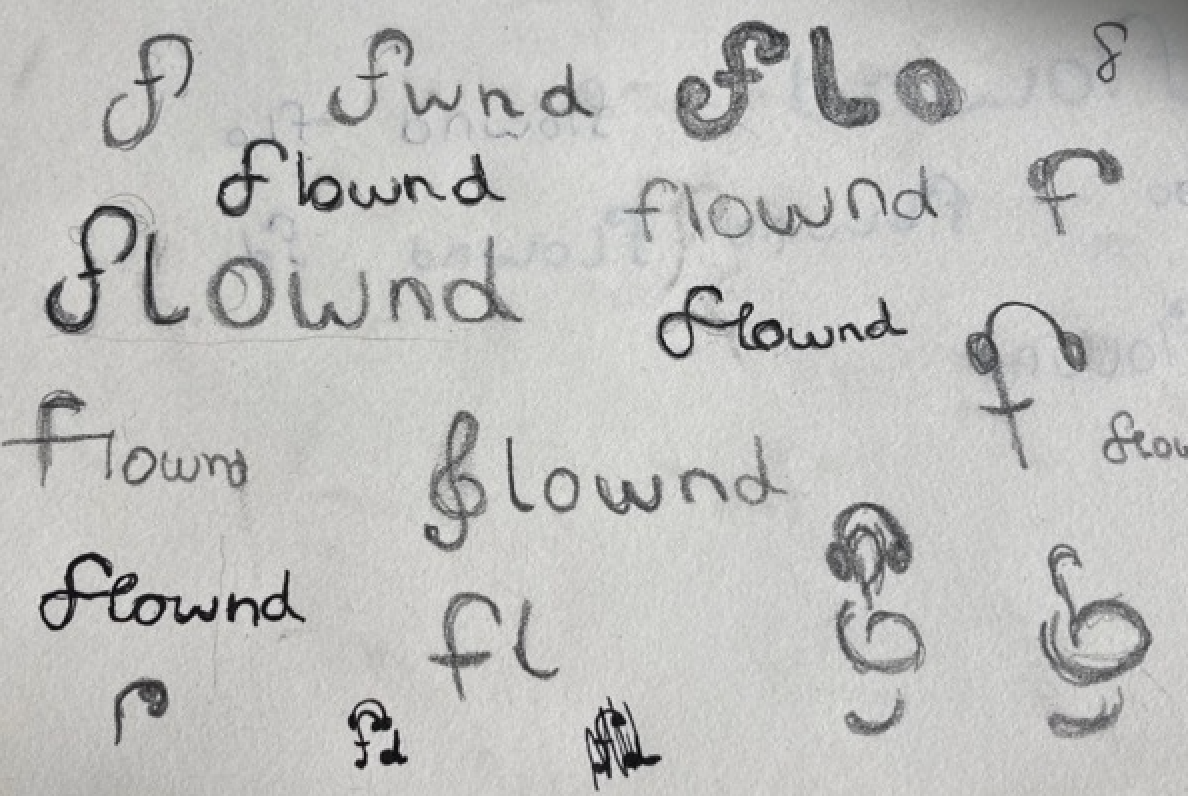 f fwnd flo 8
flownd flownd f
flownd
flownd f
flownd lownd flow
flownd
fl
fd